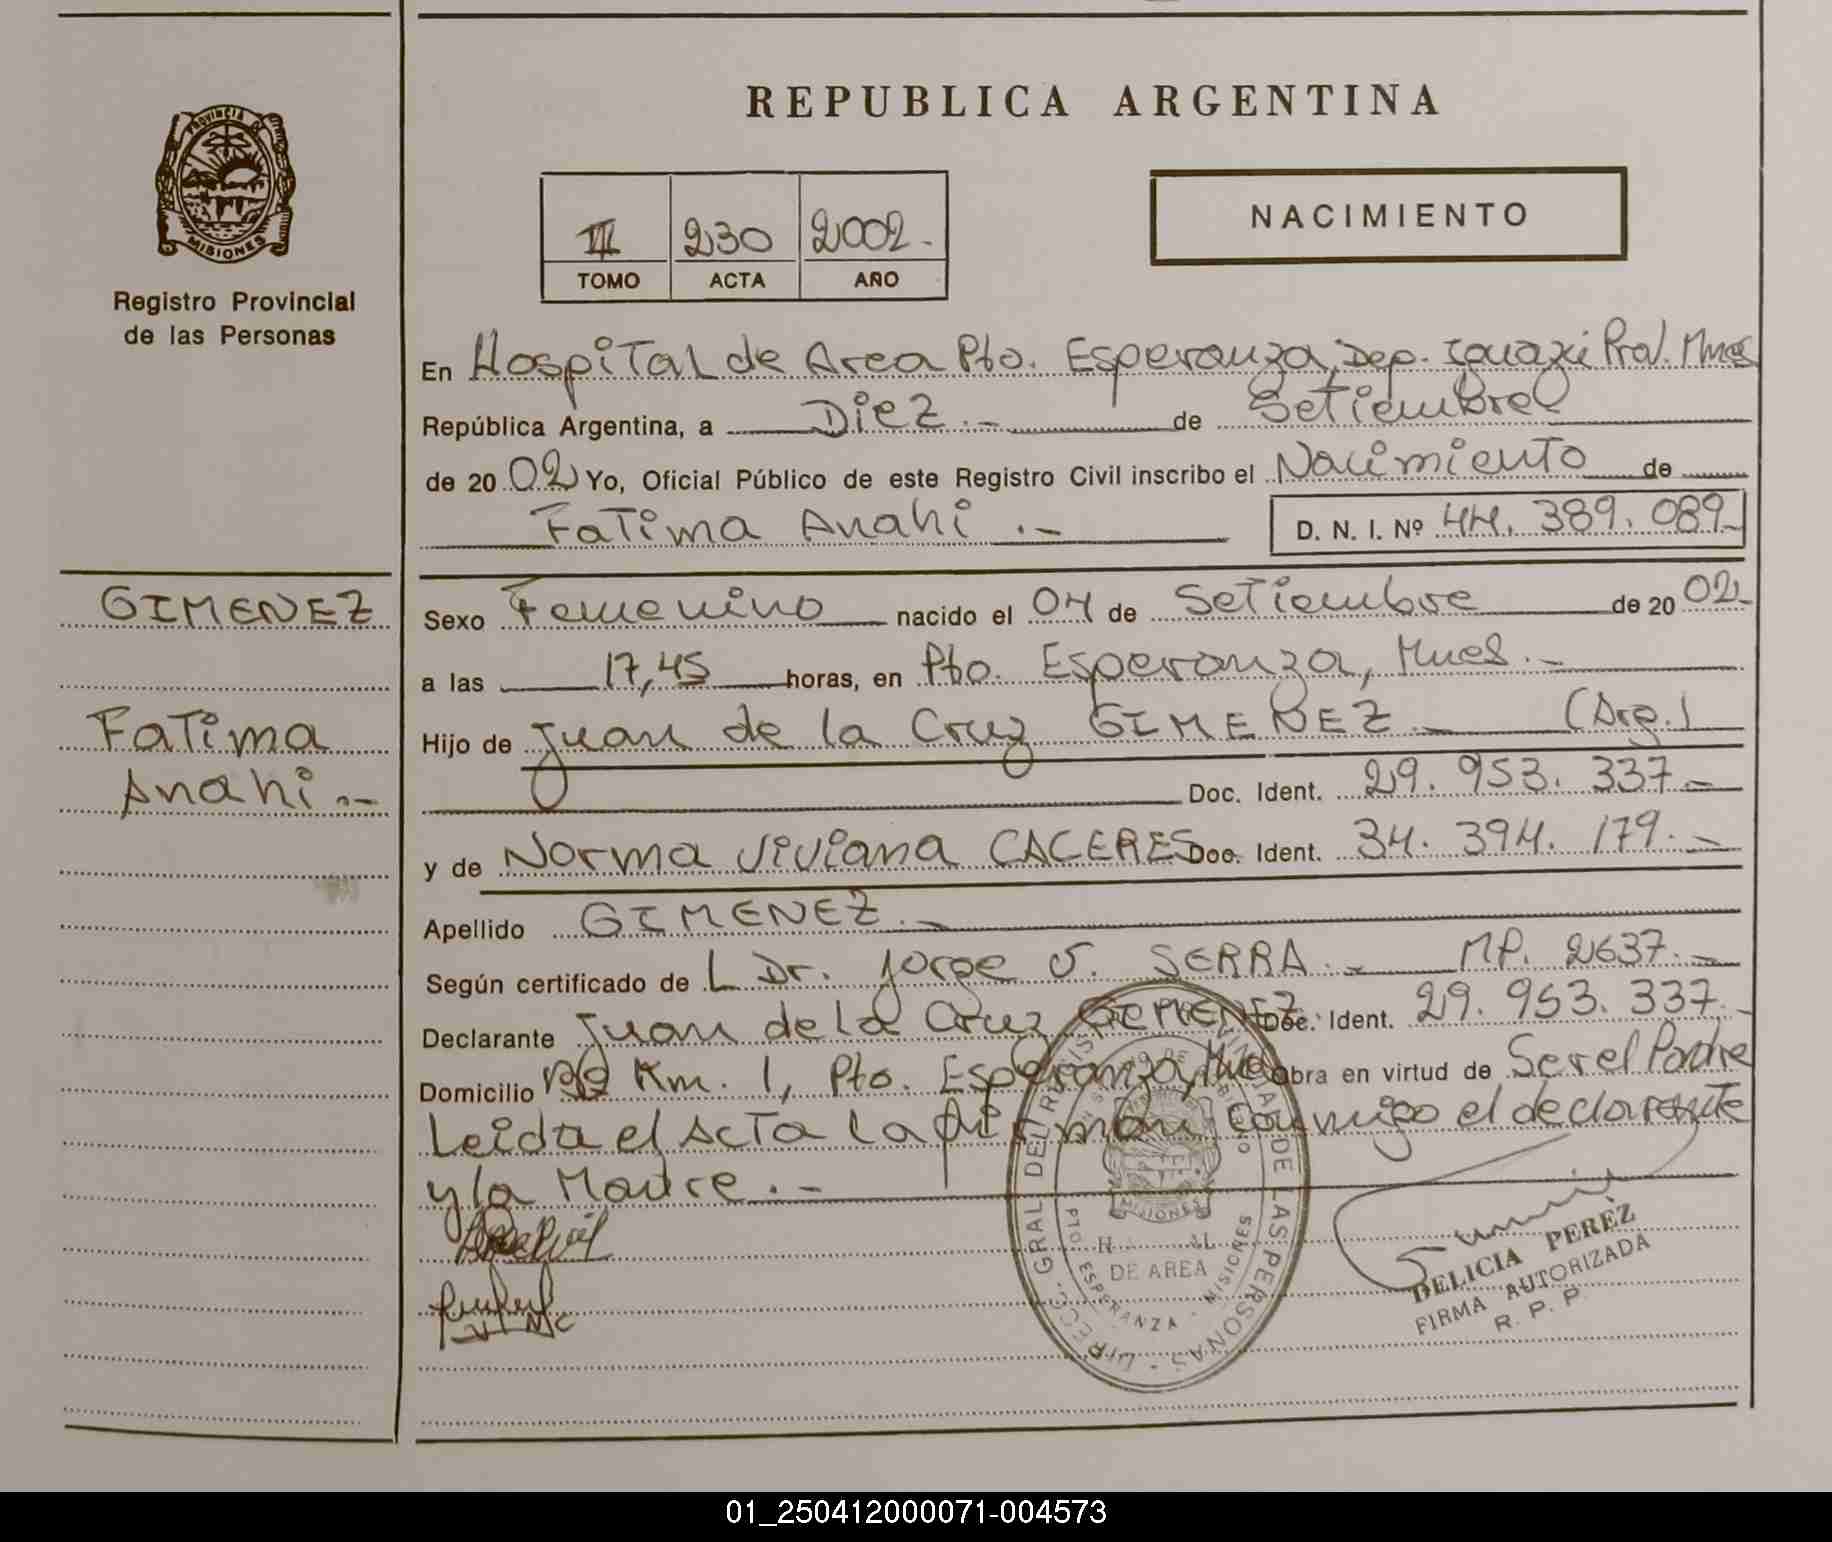 PROVINCIA DE
MISIONES
Registro Provincial
de las Personas
GIMENEZ
Fatima
Anahi.-
REPUBLICA ARGENTINA
230 2002.
TOMO ACTA AÑO
NACIMIENTO
En Hospital de Area Pto. Esperanza, Dep. Iguazú
República Argentina, a Diez.- de Setiembre
de 20 02 Yo, Oficial Público de este Registro Civil inscribo el Nacimiento de
Fatima Anahi.- D. N. I. Nº 44.389.089-
Sexo Femenino nacido el 04 de Setiembre de 20 02-
a las 17,45 horas, en Pto. Esperanza, Mnes.-
Hijo de Juan de la Cruz GIMENEZ.- (Arg.)
Doc. Ident. 29.953.337.-
y de Norma Viviana CACERES Doc. Ident. 34.394.179.-
Apellido GIMENEZ.-
Según certificado de L Dr. Jorge O. SERRA.- MP. 2637.-
Declarante Juan de la Cruz GIMENEZ Doc. Ident. 29.953.337.-
Domicilio Km. 1, Pto. Esperanza, obra en virtud de Ser el Padre
Leida el Acta la firman conmigo el declarante
y la Madre.-
DIREC. GRAL DEL REGIS PROVINCIAL DE LAS PERSONAS
MISIONES
DE AREA
PTO ESPERANZA - MISIONES
DELICIA PEREZ
FIRMA AUTORIZADA
R. P. P.
01_250412000071-004573